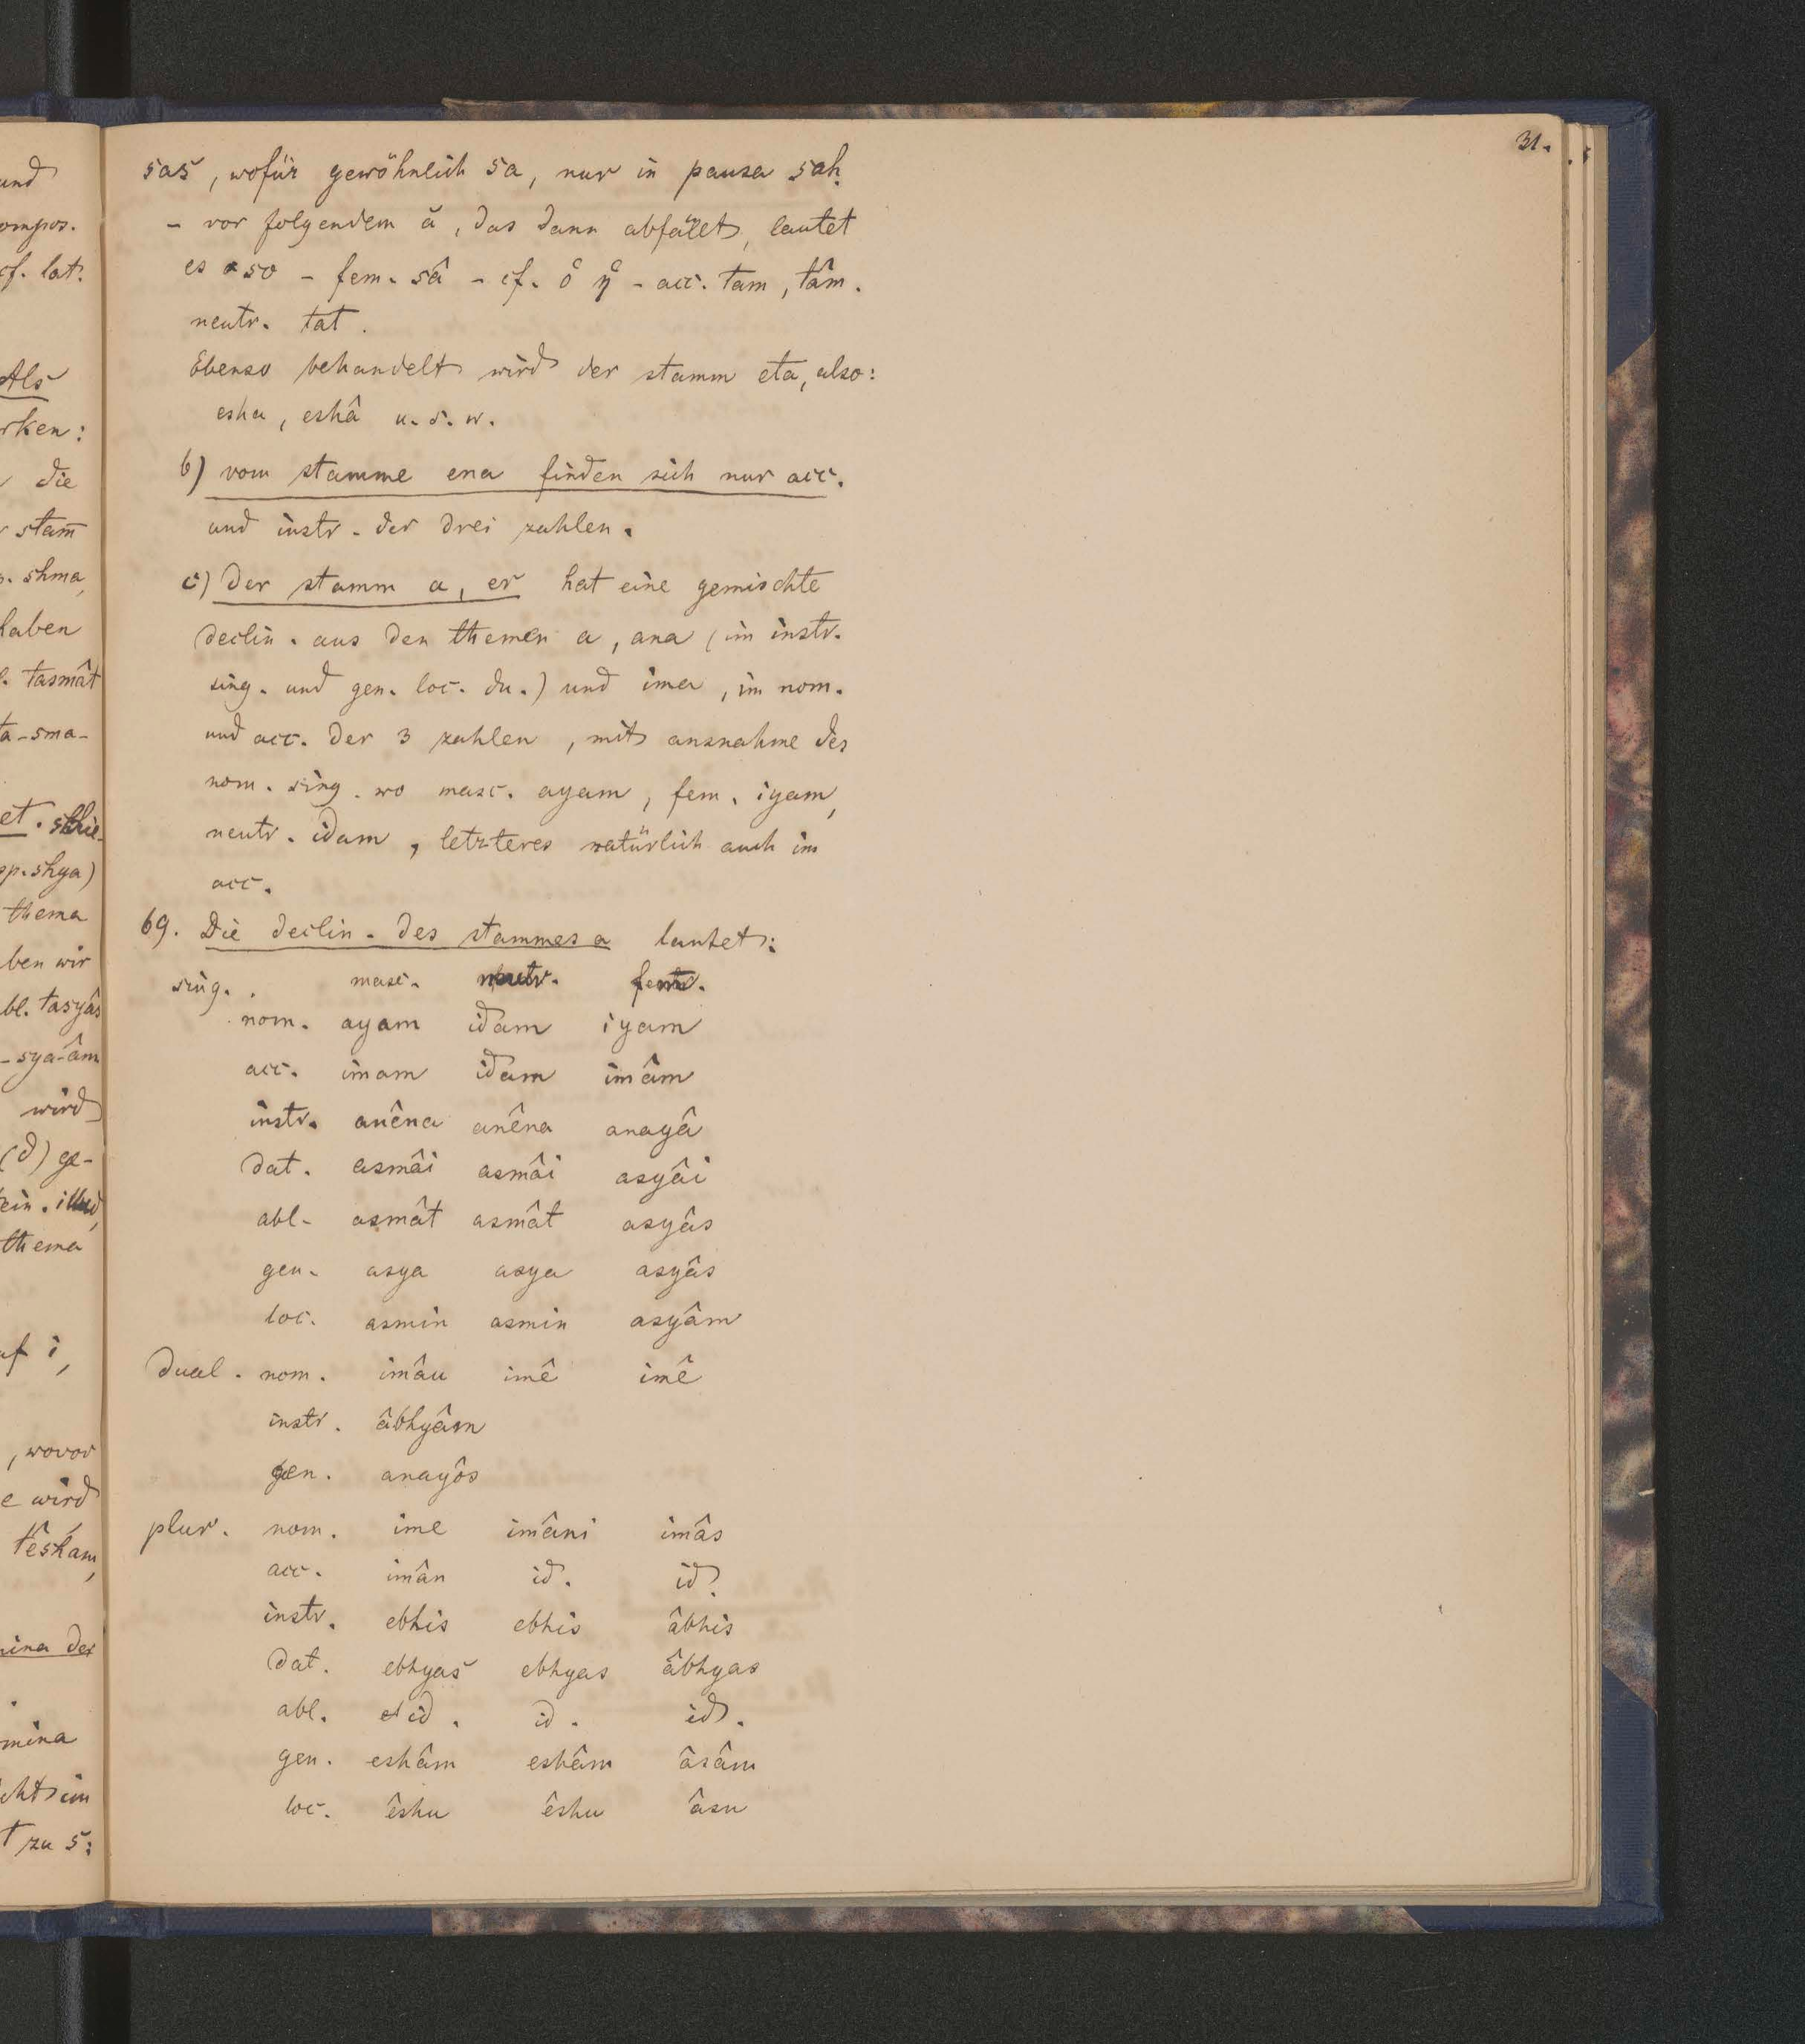 31.
sas, wofür gewöhnlich sa, nur in pausa saḥ
- vor folgendem ă, das dann abfällt, lautet
es so - fem. sâ - cf. ὁ ἡ - acc. tam, tâm.
neutr. tat.
Ebenso behandelt wird der stamm eta, also:
esha, eshâ u. s. w.
b) vom stamme ena finden sich nur acc.
und instr. der drei zahlen.
c) Der stamm a, er hat eine gemischte
declin. aus den themen a, ana (im instr.
sing. und gen. loc. du.) und ima, im nom.
und acc. der 3 zahlen, mit ausnahme des
nom. sing. wo masc. ayam, fem. iyam,
neutr. idam, letzteres natürlich auch im
acc.
69. Die declin. des stammes a lautet:
sing. masc. neutr. fem.
nom. ayam idam iyam
acc. imam idam imâm
instr. anêna anêna anayâ
dat. asmâi asmâi asyâi
abl. asmât asmât asyâs
gen. asya asya asyâs
loc. asmin asmin asyâm
dual. nom. imâu imê imê
instr. âbhyâm
gen. anayôs
plur. nom. ime imâni imâs
acc. imân id. id.
instr. ebhis ebhis âbhis
dat. ebhyas ebhyas âbhyas
abl. id. id. id.
gen. eshâm eshâm âsâm
loc. êshu êshu âsu
und
ompos.
cf. lat.
Als
rken:
die
stam̄
shma,
haben
tasmât
ta-sma-
et.
sp. shya)
thema
ben wir
bl. tasyâs
-sya-âm
wird
(d) ge-
ein. illud,
thema
uf i,
, wovor
e wird
têshâm,
ina der
mina
cht im
t zu s: